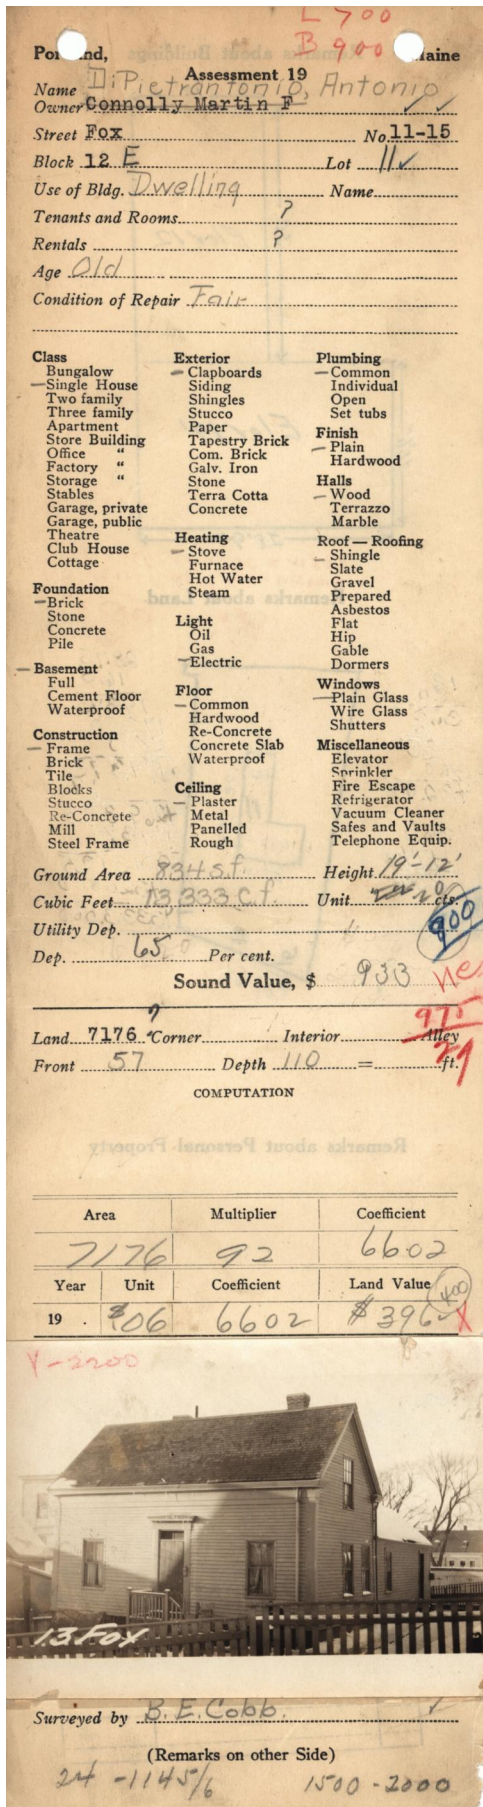 L 700
B 900
Portland, Maine
Assessment 19
Name DiPietrantonio, Antonio
Owner Connolly Martin F
Street Fox No. 11-15
Block 12 E Lot 11
Use of Bldg. Dwelling Name
Tenants and Rooms ?
Rentals ?
Age Old
Condition of Repair Fair
Class
Bungalow
Single House
Two family
Three family
Apartment
Store Building
Office "
Factory "
Storage "
Stables
Garage, private
Garage, public
Theatre
Club House
Cottage
Foundation
Brick
Stone
Concrete
Pile
Basement
Full
Cement Floor
Waterproof
Construction
Frame
Brick
Tile
Blocks
Stucco
Re-Concrete
Mill
Steel Frame
Exterior
Clapboards
Siding
Shingles
Stucco
Paper
Tapestry Brick
Com. Brick
Galv. Iron
Stone
Terra Cotta
Concrete
Heating
Stove
Furnace
Hot Water
Steam
Light
Oil
Gas
Electric
Floor
Common
Hardwood
Re-Concrete
Concrete Slab
Waterproof
Ceiling
Plaster
Metal
Panelled
Rough
Plumbing
Common
Individual
Open
Set tubs
Finish
Plain
Hardwood
Halls
Wood
Terrazzo
Marble
Roof — Roofing
Shingle
Slate
Gravel
Prepared
Asbestos
Flat
Hip
Gable
Dormers
Windows
Plain Glass
Wire Glass
Shutters
Miscellaneous
Elevator
Sprinkler
Fire Escape
Refrigerator
Vacuum Cleaner
Safes and Vaults
Telephone Equip.
Ground Area 834 s.f. Height 19'-12'
Cubic Feet 13,333 c.f. Unit 20 cts.
900
Utility Dep.
Dep. 65 Per cent.
Sound Value, $ 933
975
Land 7176 ? Corner Interior Alley
Front 57 Depth 110 = ft.
COMPUTATION
Area Multiplier Coefficient
7176 92 6602
Year Unit Coefficient Land Value 400
19 . $06 6602 $396
V-2200
13 Fox
Surveyed by B. E. Cobb.
(Remarks on other Side)
24 -1145/6 1500 - 2000